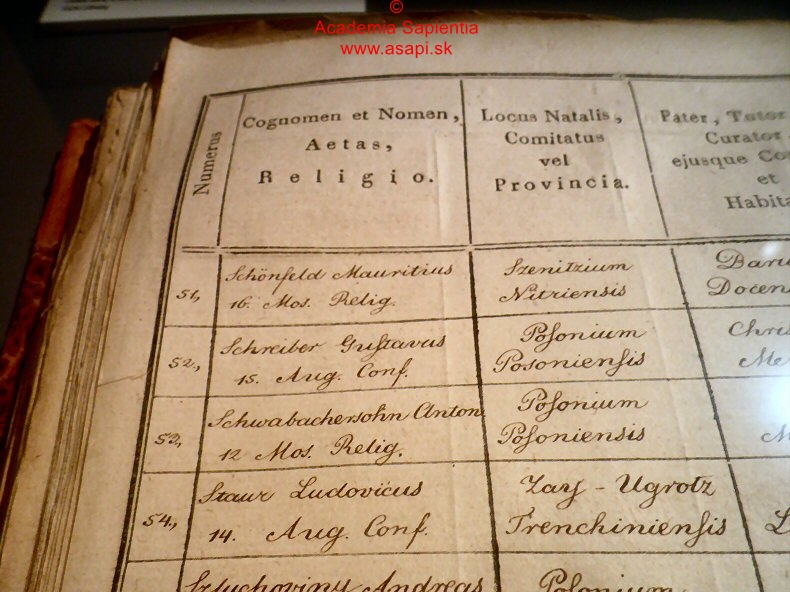 ©
Academia Sapientia
www.asapi.sk
Numerus
Cognomen et Nomen,
Aetas,
Religio.
Locus Natalis,
Comitatus
vel
Provincia.
Pater, Tutor
Curator
ejusque Co
et
Habita
51,
Schönfeld Mauritius
16. Mos. Relig.
Szenitzium
Nitriensis
Baru
Docen
52,
Schreiber Gustavus
15. Aug. Conf.
Posonium
Posoniensis
Chris
Me
53,
Schwabachersohn Anton
12 Mos. Relig.
Posonium
Posoniensis
M
54,
Staur Ludovicus
14. Aug. Conf.
Zay - Ugrotz
Trenchiniensis
L
Szluchoviny Andreas
Posonium